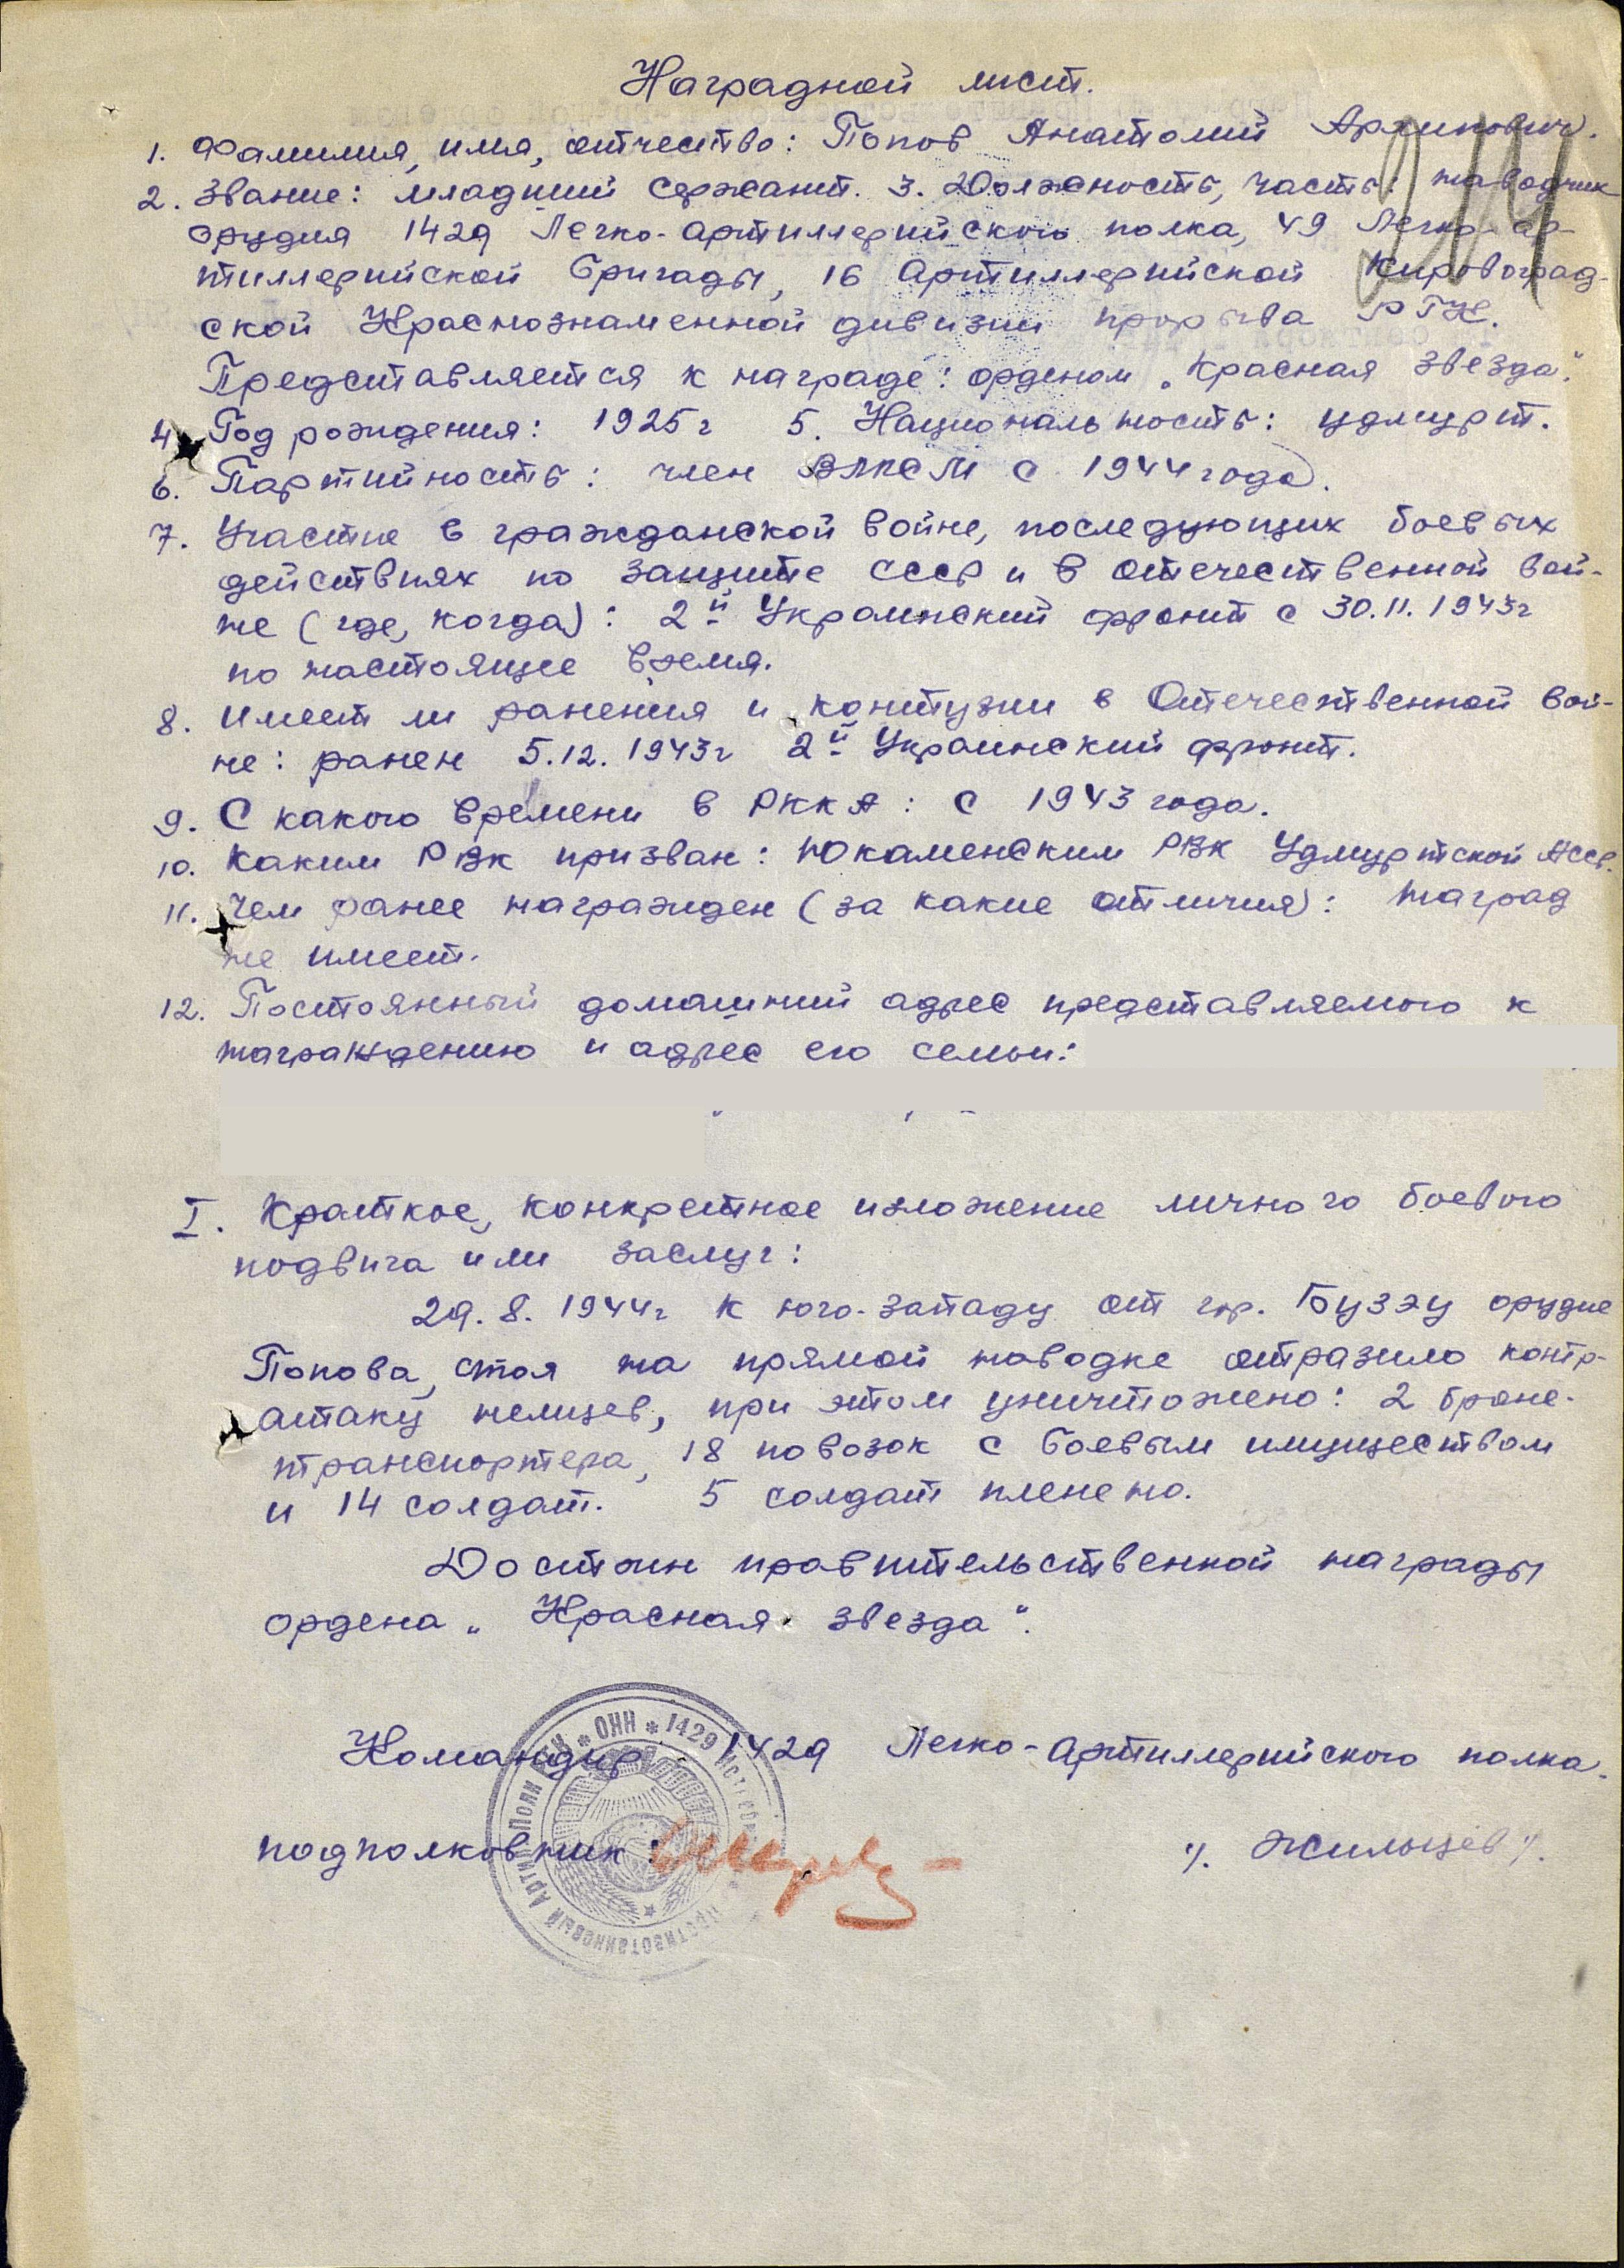 Наградной лист.
1. Фамилия, имя, отчество: Попов Анатолий
2. Звание: младший сержант. 3. Должность, часть: наводчик
орудия 1429 Легко-артиллерийского полка, 49 Легко-ар-
тиллерийской бригады, 16 Артиллерийской Кировоград-
ской Краснознаменной дивизии прорыва РГК.
Представляется к награде: орденом „Красная звезда".
4. Год рождения: 1925 г 5. Национальность: удмурт.
6. Партийность: член ВЛКСМ с 1944 года.
7. Участие в гражданской войне, последующих боевых
действиях по защите СССР и в отечественной вой-
не (где, когда): 2й Украинский фронт с 30.11.1943г
по настоящее время.
8. Имеет ли ранения и контузии в Отечественной вой-
не: ранен 5.12.1943г 2й Украинский фронт.
9. С какого времени в РККА: с 1943 года.
10. Каким РВК призван: Юкаменским РВК Удмуртской АССР.
11. Чем ранее награжден (за какие отличия): наград
не имеет.
12. Постоянный домашний адрес представляемого к
награждению и адрес его семьи:
I. Краткое, конкретное изложение личного боевого
подвига или заслуг:
29.8.1944г к юго-западу от гор. Бузэу орудие
Попова, стоя на прямой наводке отразило контр-
атаку немцев, при этом уничтожено: 2 броне-
транспортера, 18 повозок с боевым имуществом
и 14 солдат. 5 солдат пленено.
Достоин правительственной награды
ордена „Красная звезда".
Командир 1429 Легко-артиллерийского полка.
подполковник: /. Жильцов /.
* ОНН * 1429
Противотанковый